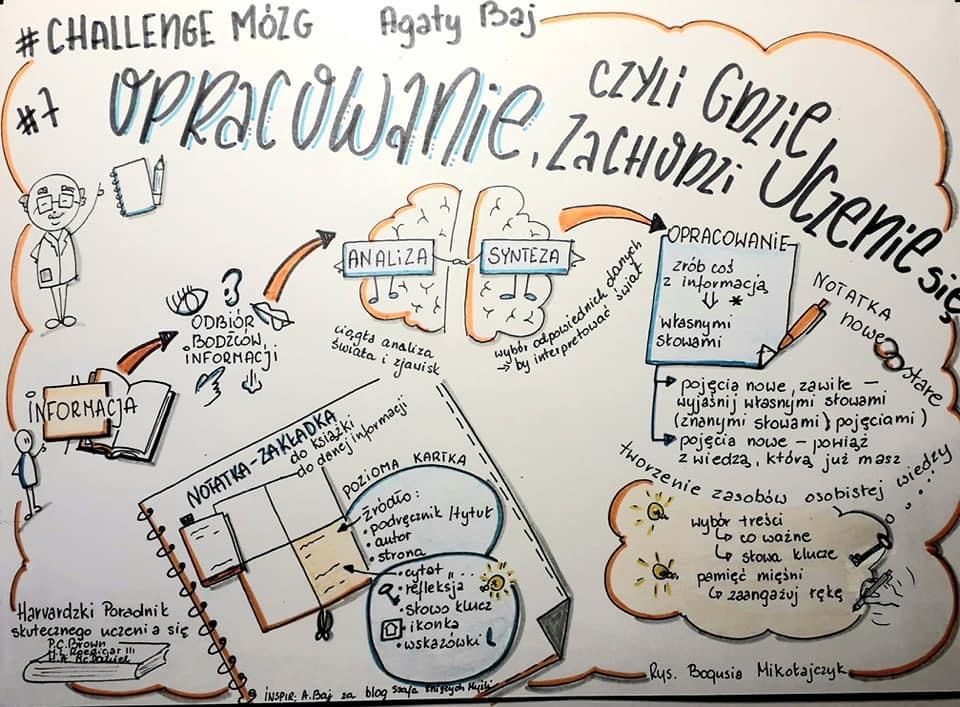 #CHALLENGE MÓZG Agaty Baj
#7
OPRACOWANIE, CZYLI GDZIE
ZACHODZI UCZENIE SIĘ
INFORMACJA
ODBIÓR
BODŹCÓW,
INFORMACJI
ANALIZA
SYNTEZA
ciągła analiza
świata i zjawisk
wybór odpowiednich danych
→ by interpretować świat
OPRACOWANIE
zrób coś
z informacją
⇓ *
własnymi
słowami
NOTATKA
nowe stare
→ pojęcia nowe, zawiłe –
wyjaśnij własnymi słowami
(znanymi słowami) pojęciami)
→ pojęcia nowe – powiąż
z wiedzą, którą już masz
tworzenie zasobów osobistej wiedzy
wybór treści
↳ co ważne
↳ słowa klucze
pamięć mięśni
↳ zaangażuj rękę
NOTATKA-ZAKŁADKA
do książki
do danej informacji
POZIOMA KARTKA
źródło:
• podręcznik /tytuł
• autor
• strona
• cytat „ "
• refleksja
• słowo klucz
• ikonka
• wskazówki
Harvardzki Poradnik
skutecznego uczenia się
P.C. Brown
H.L. Roediger III
M.A. McDaniel
INSPIR: A. Baj za blog Szafa Śniących Myśli
Rys. Bogusia Mikołajczyk